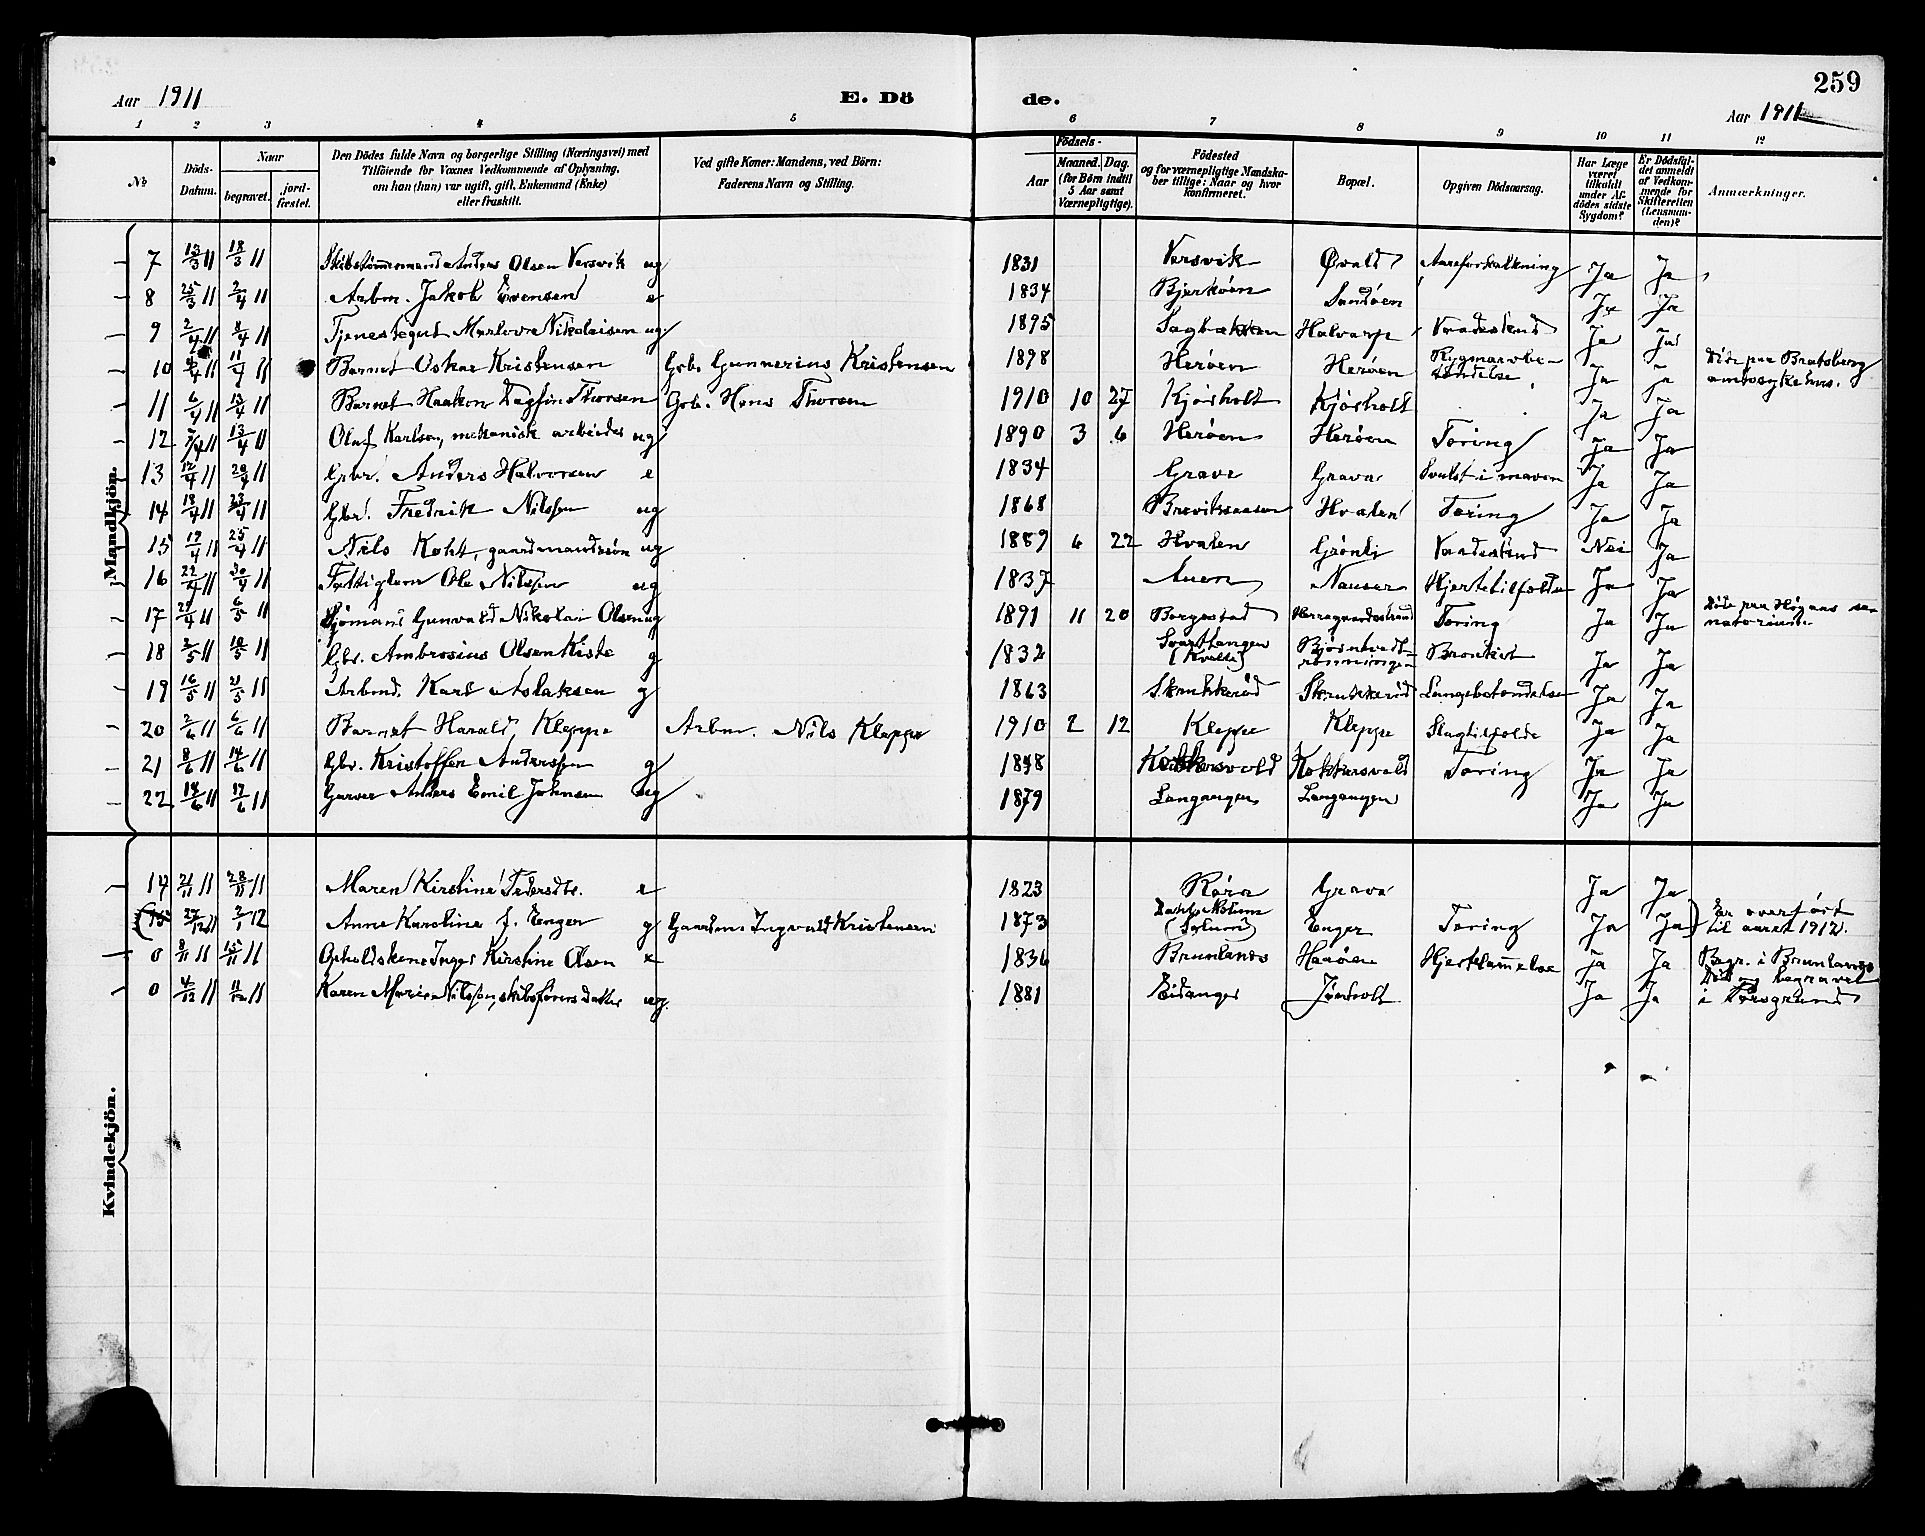 259
Aar 1911 E. Dö de. Aar 1911
1 2 3 4 5 6 7 8 9 10 11 12
No
Döds-Datum.
Naar
begravet. jord-fæstet.
Den Dödes fulde Navn og borgerlige Stilling (Næringsvei) med
Tilföiende for Voxnes Vedkommende af Oplysning,
om han (hun) var ugift, gift, Enkemand (Enke)
eller fraskilt.
Ved gifte Koner: Mandens, ved Börn:
Faderens Navn og Stilling.
Födsels-
Aar Maaned. Dag.
(for Börn indtil
5 Aar samt
Værnepligtige).
Födested
og for værnepligtige Mandska-
ber tillige: Naar og hvor
konfirmeret.
Bopæl.
Opgiven Dödsaarsag.
Har Læge
været
tilkaldt
under Af-
dödes sidste
Sygdom?
Er Dödsfal-
det anmeldt
af Vedkom-
mende for
Skifteretten
(Lensman-
den)?
Anmærkninger.
Mandkjön.
7 13/3 11 18/3 11 Skibstømmermand Anders Olsen Versvik ug 1831 Versvik Øvald Aareforkalkning Ja Ja
8 25/3 11 2/4 11 Arbm. Jakob Evensen e 1834 Bjerkøen Sandøen Ja Ja
9 2/4 11 8/4 11 Tjenestegut Nikolaisen ug 1895 Halvarp Vaadeskud Ja Ja
10 4/4 11 11/4 11 Barnet Oskar Kristensen Gbr. Gunnerius Kristensen 1898 Herøen Herøen Rygmarvbe-tændelse Ja Ja Døde paa Bratsberg
amtssykehus.
11 6/4 11 12/4 11 Barnet Haakon Dagfin Thorsen Gbr. Hans Thorsen 1910 10 27 Kjørholt Kjørholt Ja Ja
12 7/4 11 13/4 11 Olaf Karlsen, mekanisk arbeider ug 1890 3 6 Herøen Herøen Tæring Ja Ja
13 12/4 11 20/4 11 Gbr. Anders Halvorsen e 1834 Grave Grava Svulst i maven Ja Ja
14 18/4 11 23/4 11 Gbr. Fredrik Nilssen ug 1868 Hvalen Tæring Ja Ja
15 19/4 11 25/4 11 Nils Koht, gaardmandssøn ug 1889 6 22 Hvalen Grønli Vaadeskud Nei Ja
16 22/4 11 30/4 11 Fattiglem Ole Nilssen ug 1837 Auen Nauser Hjertetilfælde Ja Ja
17 29/4 11 6/5 11 Sjømand Gunvald Nikolai Olsen ug 1891 11 20 Borgestad Herregaardsstrand Tæring Ja Ja Døde paa Høgaas sa-
natorium.
18 3/5 11 10/5 11 Gbr. Ambrosius Olsen Kiste g 1832 Svartangen
(Kvelle) Bjørntvedt-
rønningen Bronkit Ja Ja
19 16/5 11 21/5 11 Arbmd. Karl Aslaksen g 1863 Skrukkerød Skrukkerød Lungebetændelse Ja Ja
20 2/6 11 6/6 11 Barnet Harald Kleppe Arbm. Nils Kleppe 1910 2 12 Kleppe Kleppe Slagtilfælde Ja Ja
21 8/6 11 14/6 11 Gbr. Kristoffer Anderssen g 1848 Kokkersvold Kokkersvold Tæring Ja Ja
22 14/6 11 17/6 11 Garver Anders Emil Johnsen ug 1879 Langangen Langangen Ja Ja
Kvindekjön.
14 21/11 11 28/11 11 Maren Kirstine Pedersdtr. e 1823 Røra Grava Ja Ja
(15 27/12 11 2/1 12 Anne Karoline J. Enger g Gaardm. Ingvald Kristensen 1873 (Solum) Enger Tæring Ja Ja) Er overført
til aaret 1912.
0 8/11 11 15/11 11 Opholdskone Inger Kirstine Olsen e 1836 Brunlanes Haaøen Hjertelammelse Ja Ja Begr. i Brunlanes
0 4/12 11 11/12 11 Karen Marie Nilssen, skibsførers datter ug. 1881 Eidanger Jønholt Ja Ja Død og begravet
i Porsgrund